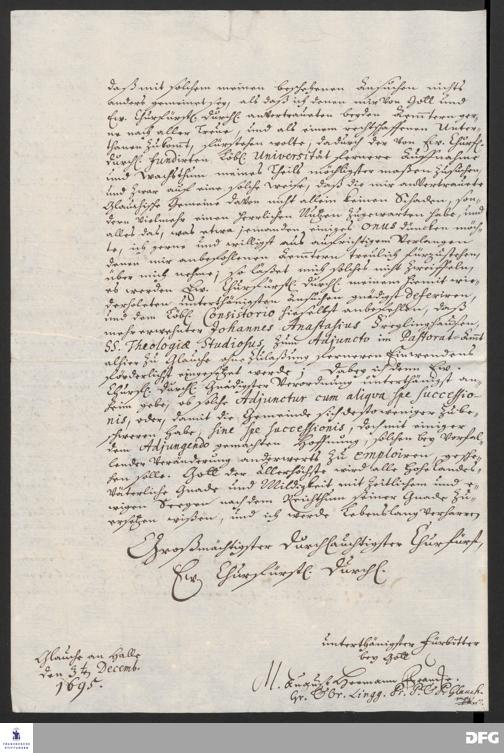 daß mit solchem meinen beschehenen Ansuchen nichts
anders gemeinet sey, als daß ich denen mir von Gott und
Ew. Churfürstl. Durchl. anvertraueten beyden Aemtern ger-
ne nach aller Treue, und als einem rechtschaffenen Unter-
thanen zukömt, fürstehen wolte, dadurch der von Ew. Churfl.
Durchl. fundirten Löbl. Universität fernere Auffnahme
und Wachsthum meines Theils möglichster maßen zusuchen,
und zwar auf eine solche Weise, daß die mir anvertrauete
Glauchische Gemeine davon nicht allein keinen Schaden, son-
dern vielmehr einen herrlichen Nutzen zugewarten habe, und
alles das, was etwa jemanden einiges onus düncken möch-
te, ich gerne und willigst aus aufrichtigem Verlangen
denen mir anbefohlenen Aemtern treulich fürzustehen,
über mich nehme; so laßet mich solches nicht zweiffeln,
es werden Ew. Churfürstl. Durchl. meinem hiemit wie-
derholeten unterthänigsten Ansuchen gnädigst deferiren,
und dem Löbl. Consistorio hieselbst anbefehlen, daß
mehr erwehnter Johannes Anastasius Freylinghausen,
SS. Theologiæ Studiosus, zum Adjuncto im Pastorat-Amt
alhier zu Glauche ohne Zulaßung ferneren Einwendens
förderlichst eingesetzet werde; Dabey ich denn Ew.
Churfl. Durchl. Gnädigster Verordnung unterthänigst an-
heim gebe, ob solche Adjunctur cum aliqva spe successio-
nis, oder, damit die Gemeinde sich desto weniger zube-
schweren habe, sine spe successionis, doch mit einiger
dem Adjungendo gemachten Hoffnung, solchen bey Vorfal-
lender Veränderung anderwerts zu emploiren, gesche-
hen solle. Gott der Allerhöchste wird alle hohe Landes-
Väterliche Gnade und Mildigkeit mit zeitlichem und e-
wigen Seegen nach dem Reichthum seiner Gnade zu
ersetzen wißen, und ich werde Lebenslang verharren
Großmächtigster Durchlauchtigster Churfürst,
Ew. Churfürstl. Durchl.
unterthänigster Fürbitter
bey Gott
Glauche an Halle
den 3t. Decemb.
1695.
M. August Hermann Francke.
Gr. &amp; Or. Lingg. Pr. P. &amp; P. Glauch.
FRANCKESCHE STIFTUNGEN
DFG